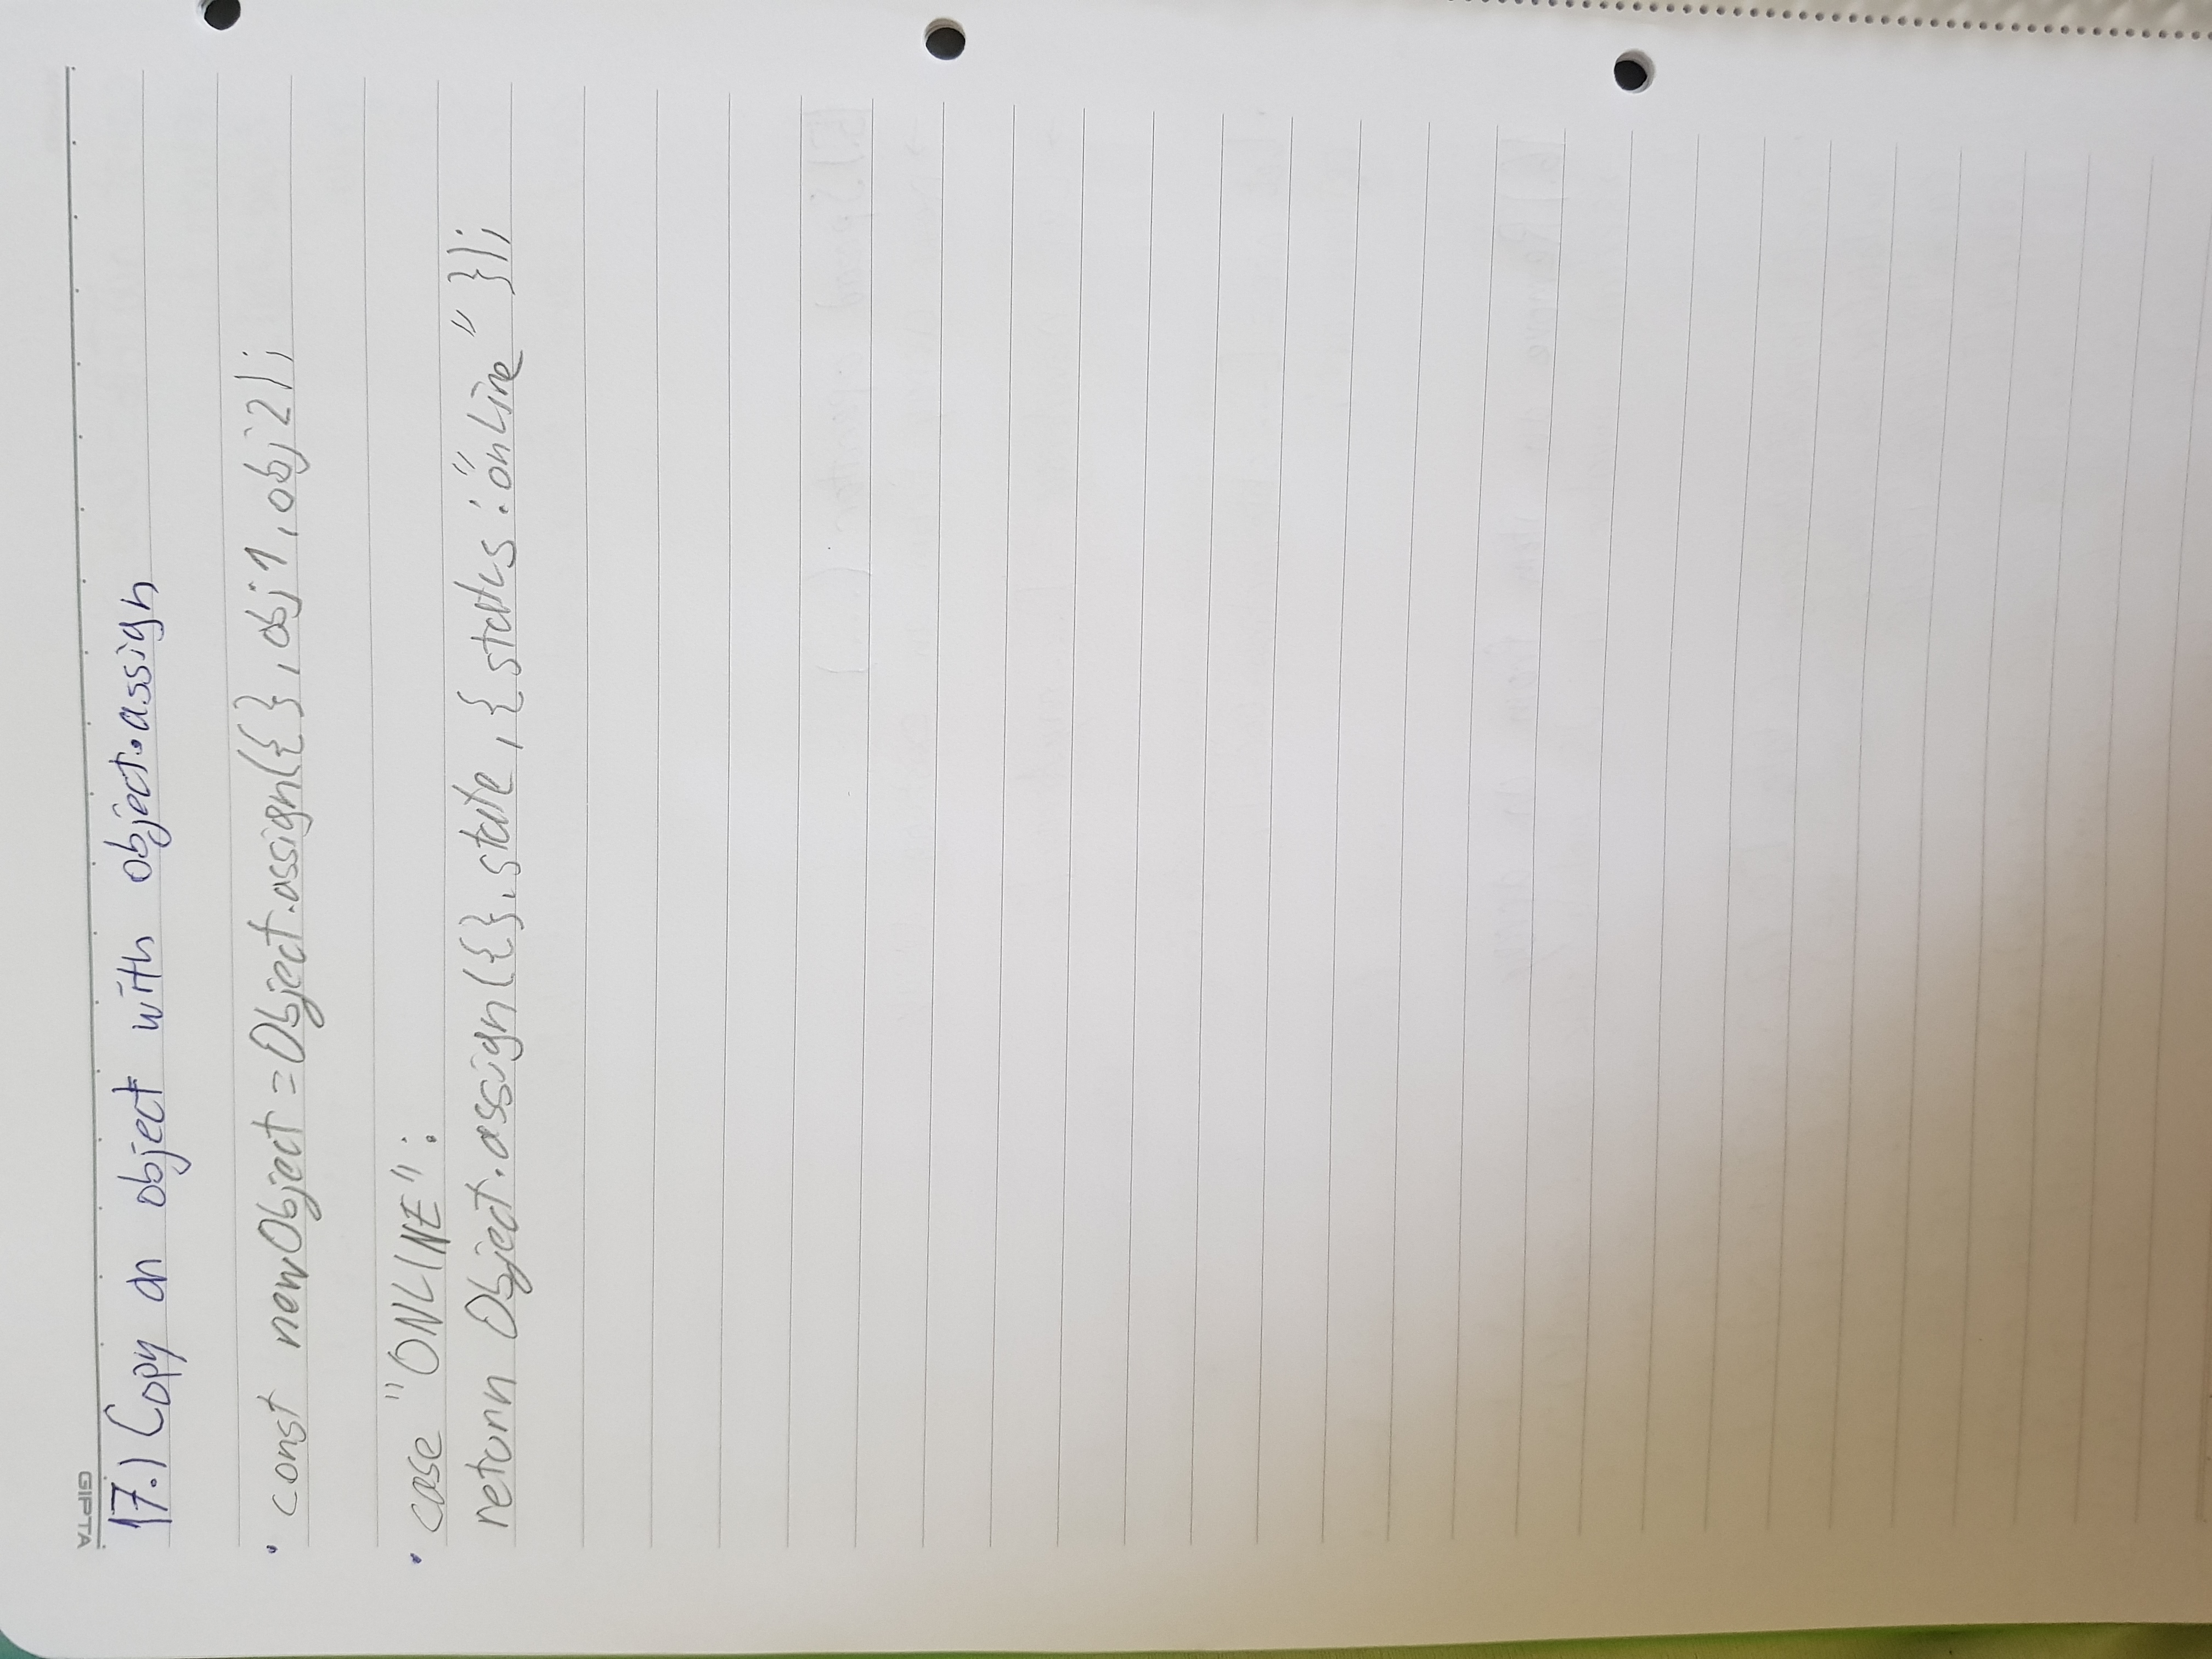 GIPTA
17.) Copy an object with object.assign
• const newObject = Object.assign({}, obj1, obj2);
• case "ONLINE":
return Object.assign({}, state, { status: "online" });